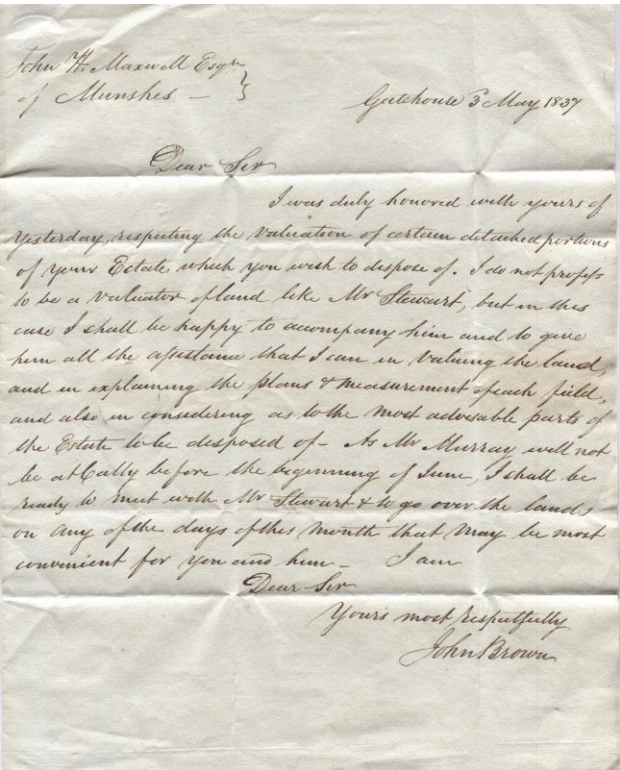 John H. Maxwell Esqr
of Munshes — }
Gatehouse 3 May 1837
Dear Sir
I was duly honored with yours of
yesterday, respecting the valuation of certain detached portions
of your Estate which you wish to dispose of. I do not profess
to be a valuator of land like Mr Stewart, but in this
case I shall be happy to accompany him and to give
him all the assistance that I can in valuing the land,
and in explaining the plans & measurement of each field,
and also in considering as to the most advisable parts of
the Estate to be disposed of – As Mr Murray will not
be at Cally before the beginning of June, I shall be
ready to meet with Mr Stewart & to go over the lands
on any of the days of this month that may be most
convenient for you and him – I am
Dear Sir
Yours most respectfully
John Brown